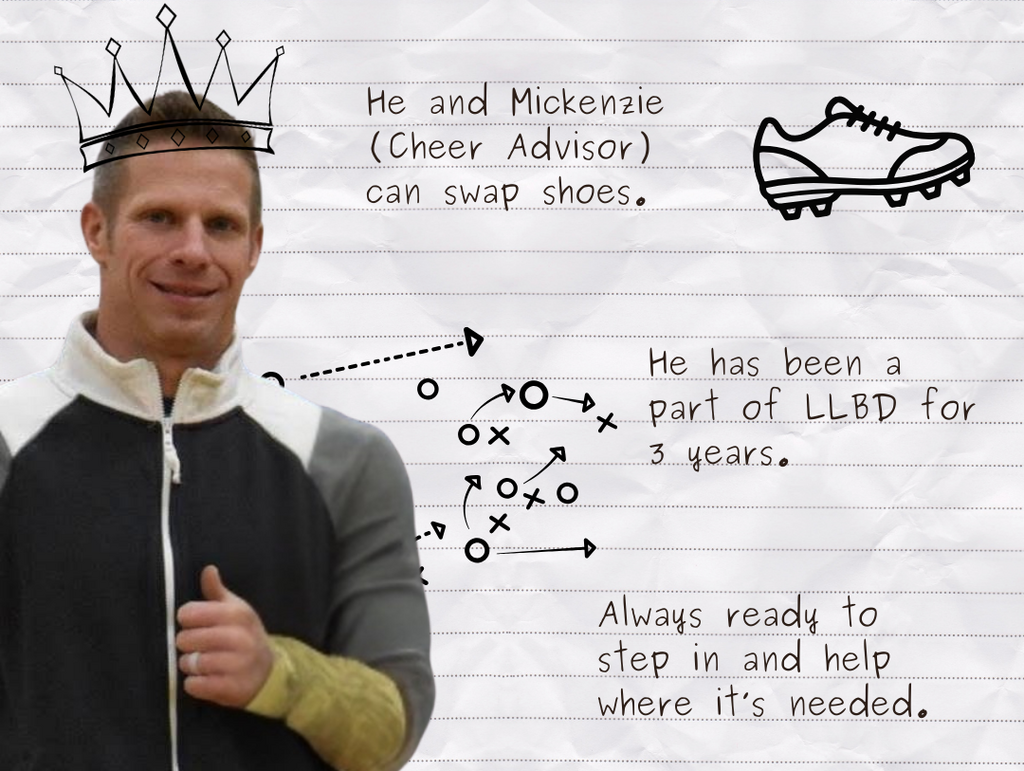 He and Mickenzie
(Cheer Advisor)
can swap shoes.
He has been a
part of LLBD for
3 years.
Always ready to
step in and help
where it's needed.